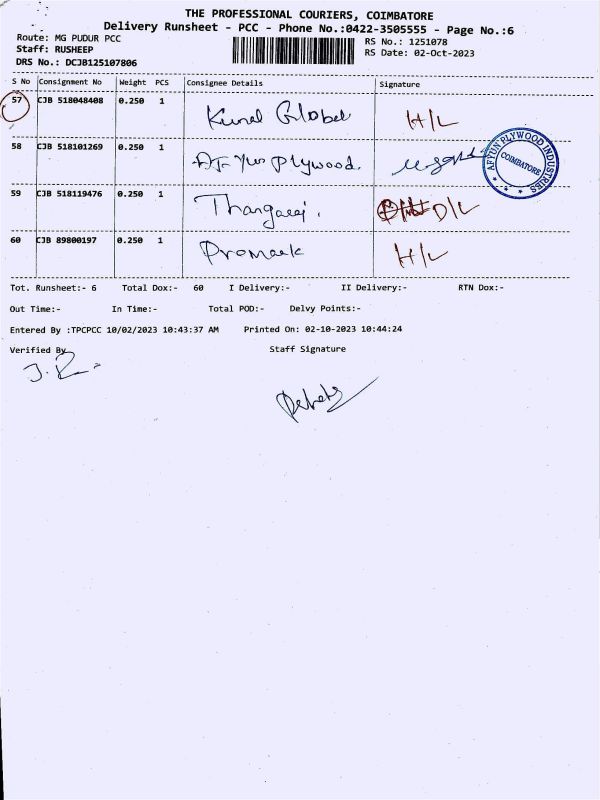 THE PROFESSIONAL COURIERS, COIMBATORE
Delivery Runsheet - PCC - Phone No.:0422-3505555 - Page No.:6
Route: MG PUDUR PCC RS No.: 1251078
Staff: RUSHEEP RS Date: 02-Oct-2023
DRS No.: DCJB125107806
S No Consignment No Weight PCS Consignee Details Signature
57 CJB 518048408 0.250 1 Kunal Global H/L
58 CJB 518101269 0.250 1 Af yun Plywood. AFYUN PLYWOOD INDUSTRIES COIMBATORE
59 CJB 518119476 0.250 1 Thangaraj. D/L
60 CJB 89800197 0.250 1 Promark H/L
Tot. Runsheet:- 6 Total Dox:- 60 I Delivery:- II Delivery:- RTN Dox:-
Out Time:- In Time:- Total POD:- Delvy Points:-
Entered By :TPCPCC 10/02/2023 10:43:37 AM Printed On: 02-10-2023 10:44:24
Verified By Staff Signature